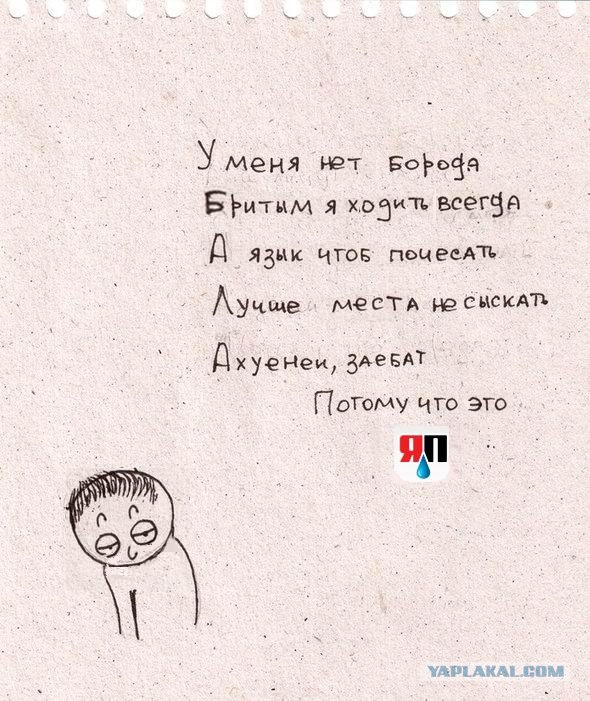 У меня нет борода
Бритым я ходить всегда
А язык чтоб почесать
Лучше места не сыскать
Ахуенен, заебат
Потому что это
ЯП
YAPLAKAL.COM